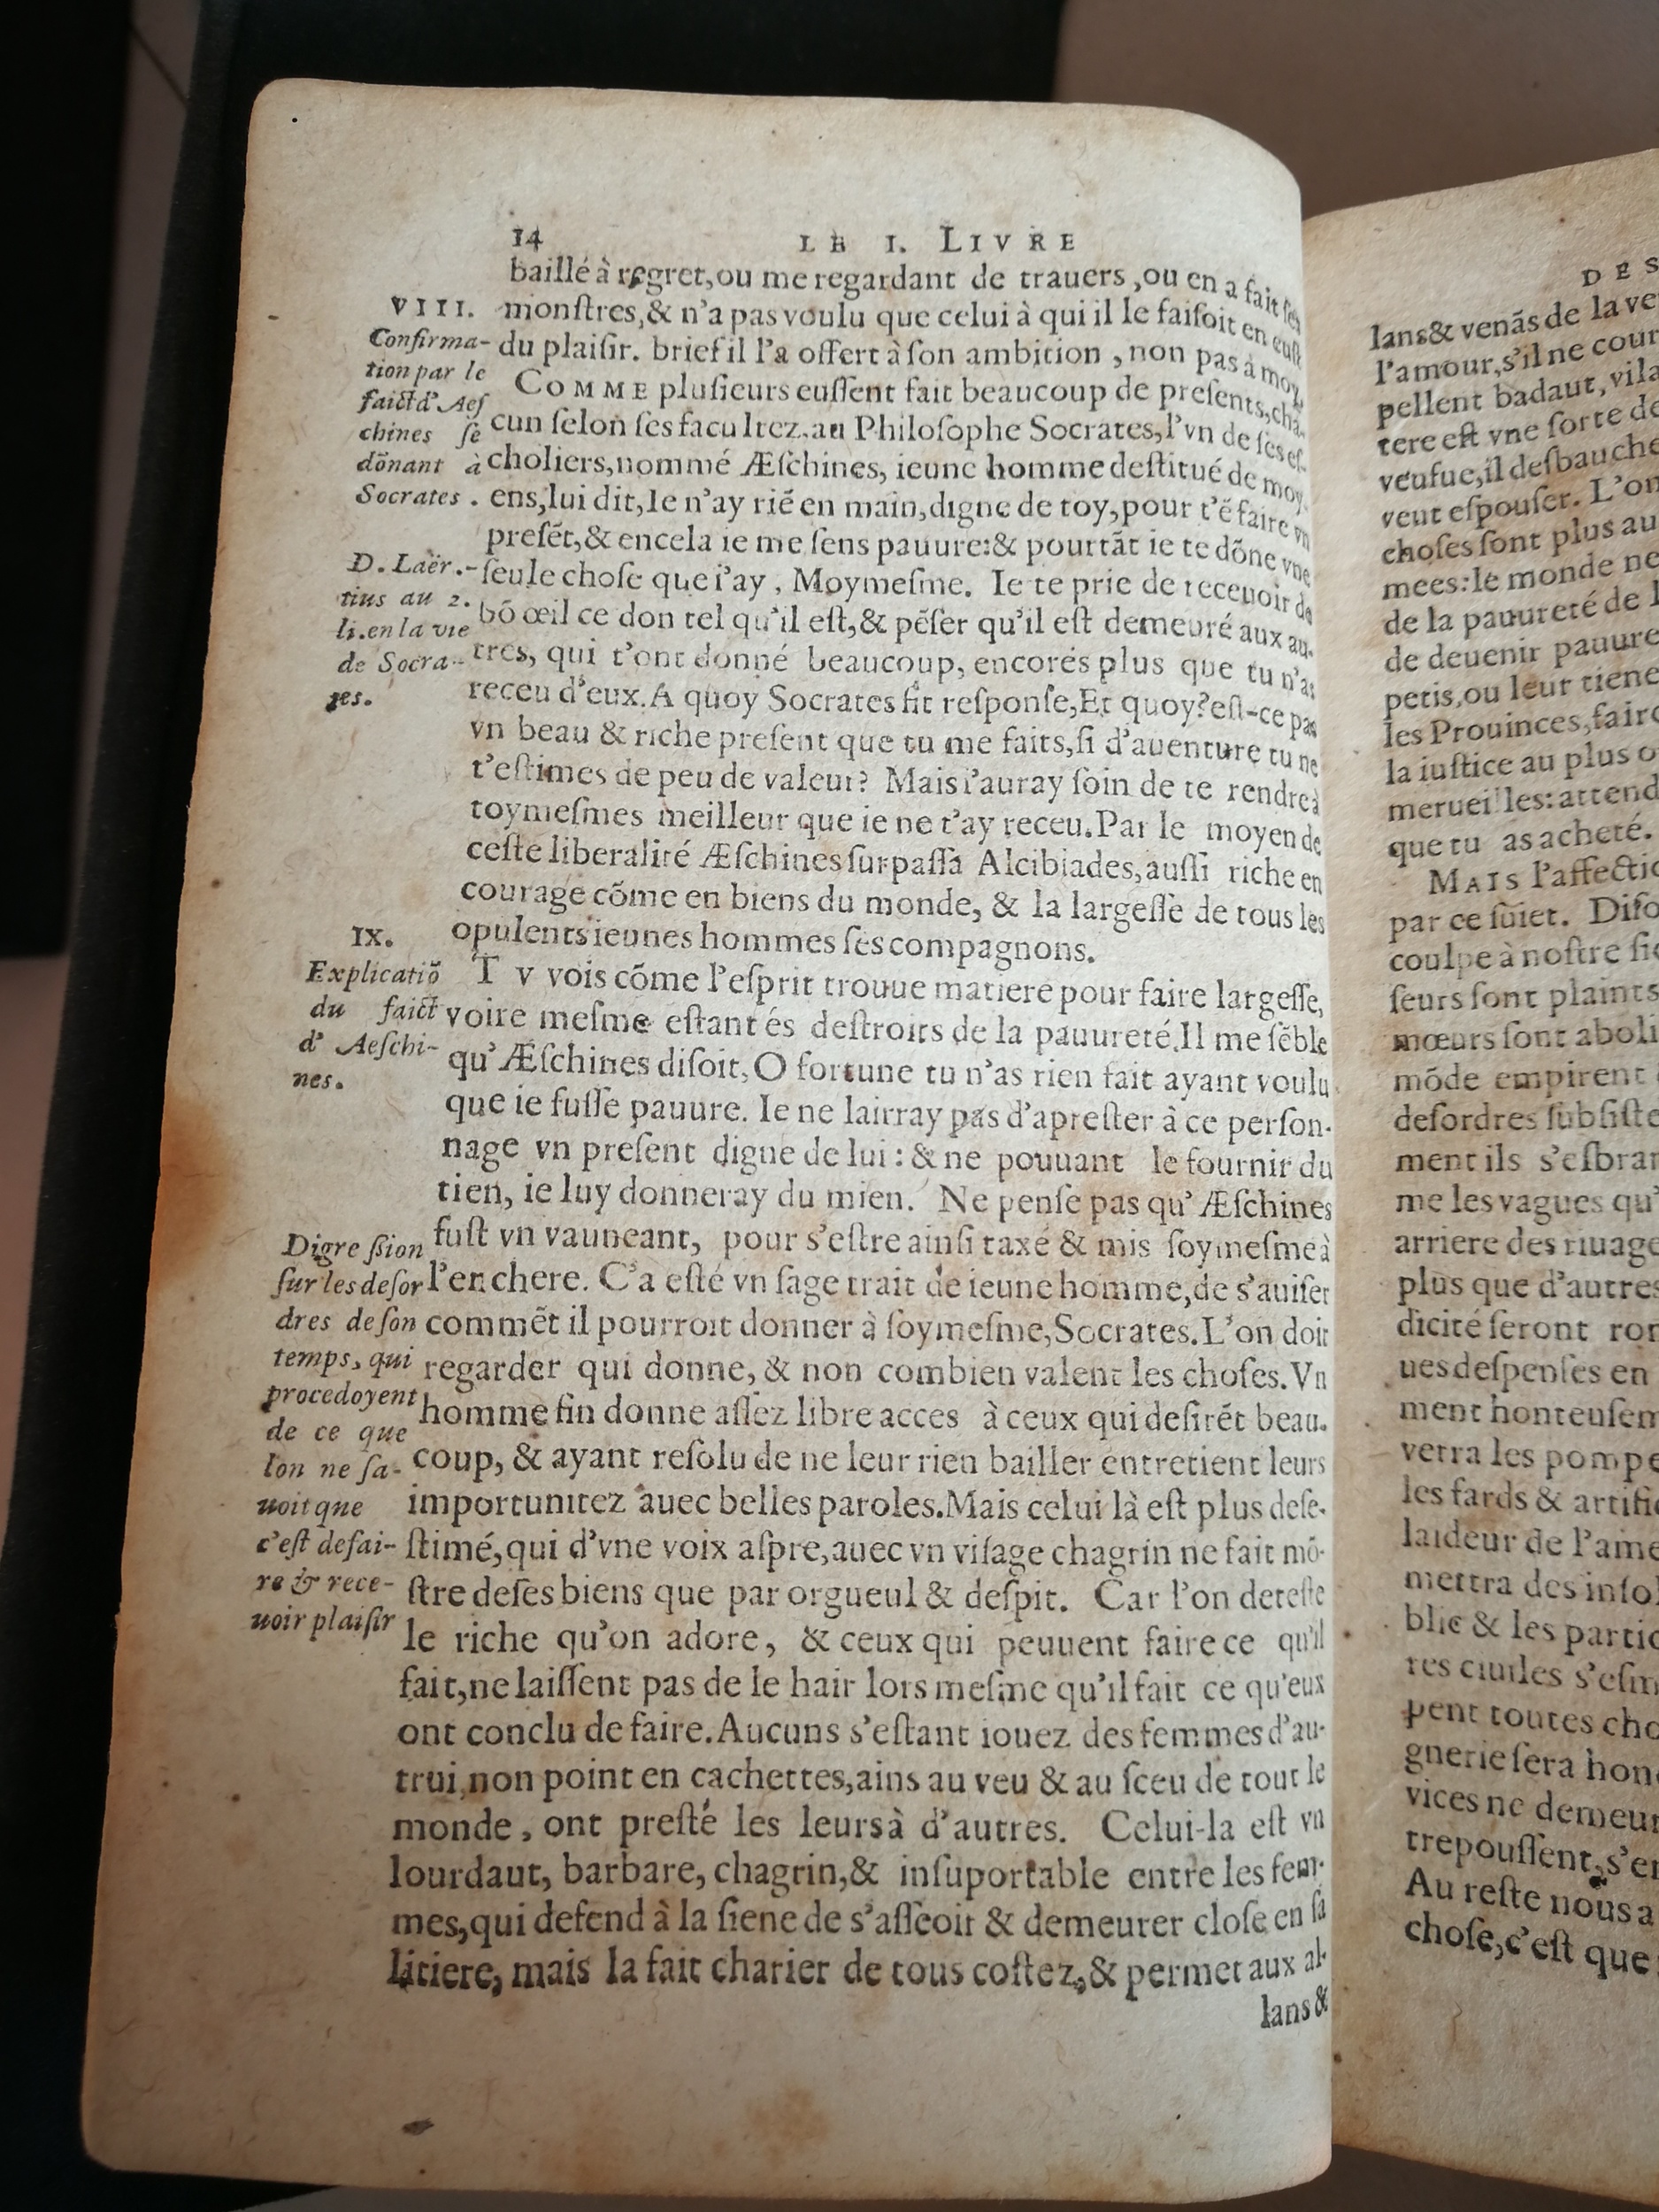 14 LE I. LIVRE
baillé à regret, ou me regardant de trauers, ou en a fait ses
monſtres, & n'a pas voulu que celui à qui il le faiſoit en euſt
du plaiſir. brief il l'a offert à ſon ambition, non pas à moy.
COMME pluſieurs euſſent fait beaucoup de preſents, cha-
cun ſelon ſes facultez, au Philoſophe Socrates, l'vn de ſes eſ-
choliers, nommé Æſchines, ieune homme deſtitué de moy-
ens, lui dit, Ie n'ay riẽ en main, digne de toy, pour t'ẽ faire vn
preſẽt, & en cela ie me ſens pauure: & pourtãt ie te dõne vne
ſeule choſe que i'ay, Moymeſme. Ie te prie de receuoir de
bõ œil ce don tel qu'il eſt, & pẽſer qu'il eſt demeuré aux au-
tres, qui t'ont donné beaucoup, encores plus que tu n'as
receu d'eux. A quoy Socrates fit reſponſe, Et quoy? eſt-ce pas
vn beau & riche preſent que tu me faits, ſi d'auenture tu ne
t'eſtimes de peu de valeur? Mais i'auray ſoin de te rendre à
toymeſmes meilleur que ie ne t'ay receu. Par le moyen de
ceſte liberalité Æſchines ſurpaſſa Alcibiades, auſſi riche en
courage cõme en biens du monde, & la largeſſe de tous les
opulents ieunes hommes ſes compagnons.
TV vois cõme l'eſprit trouue matiere pour faire largeſſe,
voire meſme eſtant és deſtroits de la pauureté. Il me ſẽble
qu'Æſchines diſoit, O fortune tu n'as rien fait ayant voulu
que ie fuſſe pauure. Ie ne lairray pas d'apreſter à ce perſon-
nage vn preſent digne de lui: & ne pouuant le fournir du
tien, ie luy donneray du mien. Ne penſe pas qu'Æſchines
fuſt vn vauneant, pour s'eſtre ainſi taxé & mis ſoymeſme à
l'enchere. C'a eſté vn ſage trait de ieune homme, de s'auiſer
commẽt il pourroit donner à ſoymeſme, Socrates. L'on doit
regarder qui donne, & non combien valent les choſes. Vn
homme fin donne aſſez libre acces à ceux qui deſirẽt beau-
coup, & ayant reſolu de ne leur rien bailler entretient leurs
importunitez auec belles paroles. Mais celui là eſt plus deſe-
ſtimé, qui d'vne voix aſpre, auec vn viſage chagrin ne fait mõ-
ſtre de ſes biens que par orgueul & deſpit. Car l'on deteſte
le riche qu'on adore, & ceux qui peuuent faire ce qu'il
fait, ne laiſſent pas de le hair lors meſme qu'il fait ce qu'eux
ont conclu de faire. Aucuns s'eſtant iouez des femmes d'au-
trui, non point en cachettes, ains au veu & au ſceu de tout le
monde, ont preſté les leurs à d'autres. Celui-la eſt vn
lourdaut, barbare, chagrin, & inſuportable entre les fem-
mes, qui defend à la ſiene de s'aſſeoir & demeurer cloſe en ſa
litiere, mais la fait charier de tous coſtez, & permet aux al-
lans &
VIII.
Confirma-
tion par le
faict d'Aeſ
chines ſe
dõnant à
Socrates.
D. Laër.-
tius au 2.
li. en la vie
de Socra-
tes.
IX.
Explicatiõ
du faict
d'Aeſchi-
nes.
Digreſsion
ſur les deſor
dres de ſon
temps, qui
procedoyent
de ce que
lon ne ſa-
uoit que
c'eſt de fai-
re & rece-
uoir plaiſir
DES
lans & venãs de la ve
l'amour, s'il ne cour
pellent badaut, vila
tere eſt vne ſorte de
veufue, il deſbauche
veut eſpouſer. L'on
choſes ſont plus au
mees: le monde ne
de la pauureté de l
de deuenir pauure
petis, ou leur tiene
les Prouinces, faire
la iuſtice au plus o
merueilles: attend
que tu as acheté.
MAIS l'affectio
par ce ſuiet. Diſo
coulpe à noſtre ſie
ſeurs ſont plaints
mœurs ſont aboli
mõde empirent
deſordres ſubſiſte
ment ils s'eſbran
me les vagues qu'
arriere des riuage
plus que d'autres
dicité ſeront ror
ues deſpenſes en
ment honteuſem
verra les pompe
les fards & artifi
laideur de l'ame
mettra des inſol
blic & les partic
res ciuiles s'eſm
pent toutes cho
gnerie ſera hono
vices ne demeur
trepouſſent, s'en
Au reſte nous a
choſe, c'eſt que